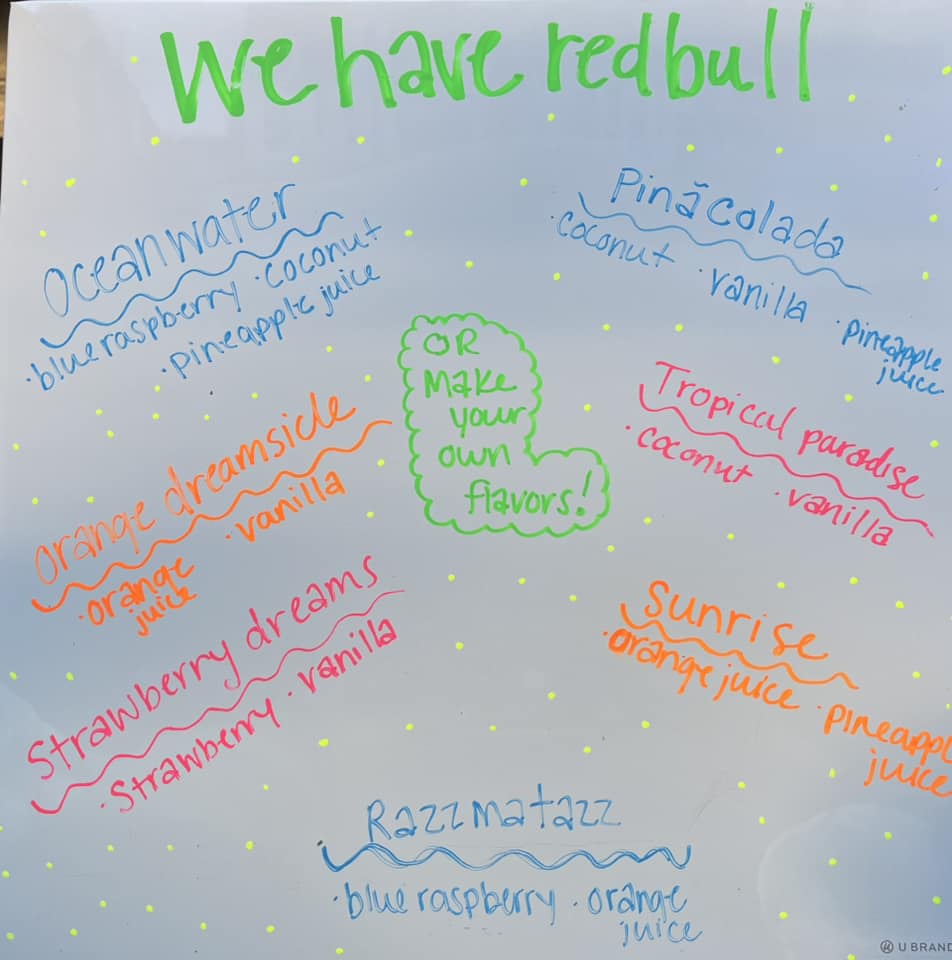 We have redbull
Oceanwater
·blue raspberry ·coconut
·pineapple juice
Pină Colada
·coconut ·vanilla ·pineapple
juice
OR
Make
your
own
flavors!
orange dreamsicle
·orange ·vanilla
juice
Tropical paradise
·coconut ·vanilla
Strawberry dreams
·Strawberry ·vanilla
Sunrise
·orange juice ·pineapple
juice
Razzmatazz
·blue raspberry ·orange
juice
U BRAND